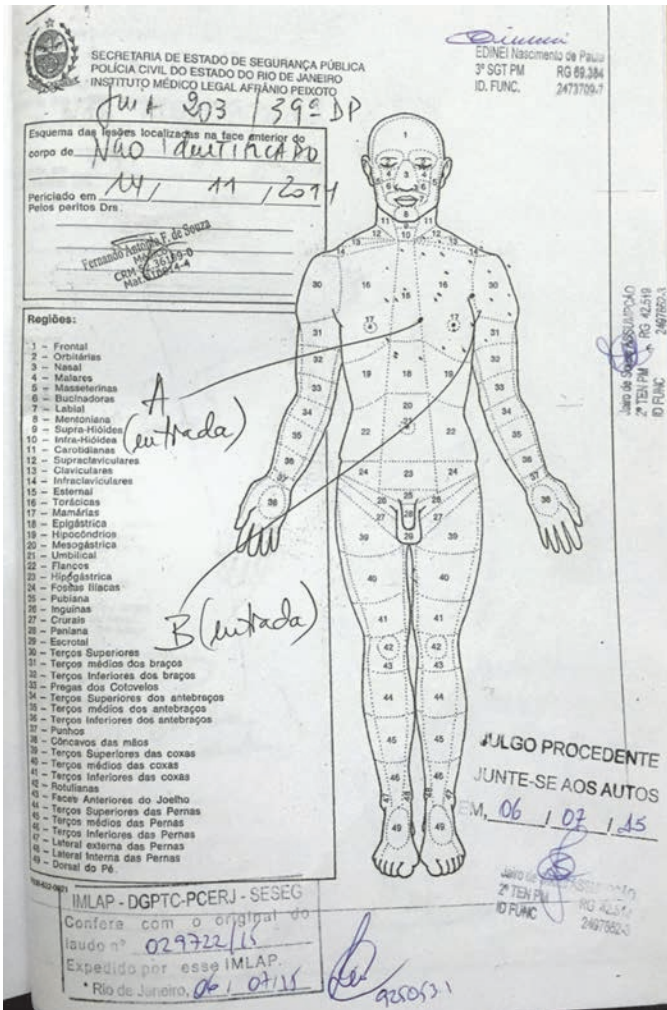 SECRETARIA DE ESTADO DE SEGURANÇA PÚBLICA
POLÍCIA CIVIL DO ESTADO DO RIO DE JANEIRO
INSTITUTO MÉDICO LEGAL AFRÂNIO PEIXOTO
EDINEI Nascimento de Paula
3º SGT PM RG 69.384
ID. FUNC. 2473709-7
203 / 39ª DP
Esquema das lesões localizadas na face anterior do
corpo de NÃO IDENTIFICADO
Periciado em 14 / 11 / 2014
Pelos peritos Drs.
Fernando Antonio F. de Souza
Regiões:
1 – Frontal
2 – Orbitárias
3 – Nasal
4 – Malares
5 – Masseterinas
6 – Bucinadoras
7 – Labial
8 – Mentoniana
9 – Supra-Hióidea
10 – Infra-Hióidea
11 – Carotidianas
12 – Supraclaviculares
13 – Claviculares
14 – Infraclaviculares
15 – Esternal
16 – Torácicas
17 – Mamárias
18 – Epigástrica
19 – Hipocôndrios
20 – Mesogástrica
21 – Umbilical
22 – Flancos
23 – Hipogástrica
24 – Fossas Ilíacas
25 – Pubiana
26 – Inguinas
27 – Crurais
28 – Peniana
29 – Escrotal
30 – Terços Superiores
31 – Terços médios dos braços
32 – Terços Inferiores dos braços
33 – Pregas dos Cotovelos
34 – Terços Superiores dos antebraços
35 – Terços médios dos antebraços
36 – Terços Inferiores dos antebraços
37 – Punhos
38 – Côncavos das mãos
39 – Terços Superiores das coxas
40 – Terços médios das coxas
41 – Terços Inferiores das coxas
42 – Rotulianas
43 – Faces Anteriores do Joelho
44 – Terços Superiores das Pernas
45 – Terços médios das Pernas
46 – Terços Inferiores das Pernas
47 – Lateral externa das Pernas
48 – Lateral Interna das Pernas
49 – Dorsal do Pé
A
(entrada)
B (entrada)
2º TEN PM RG 42.519
ID FUNC 2497662-3
JULGO PROCEDENTE
JUNTE-SE AOS AUTOS
EM, 06 / 07 / 15
2º TEN PM RG 42.519
ID FUNC 2497662-3
IMLAP - DGPTC-PCERJ - SESEG
Confere com o original do
laudo nº 029722/15
Expedido por esse IMLAP.
Rio de Janeiro, 06 / 07/15
925053.1